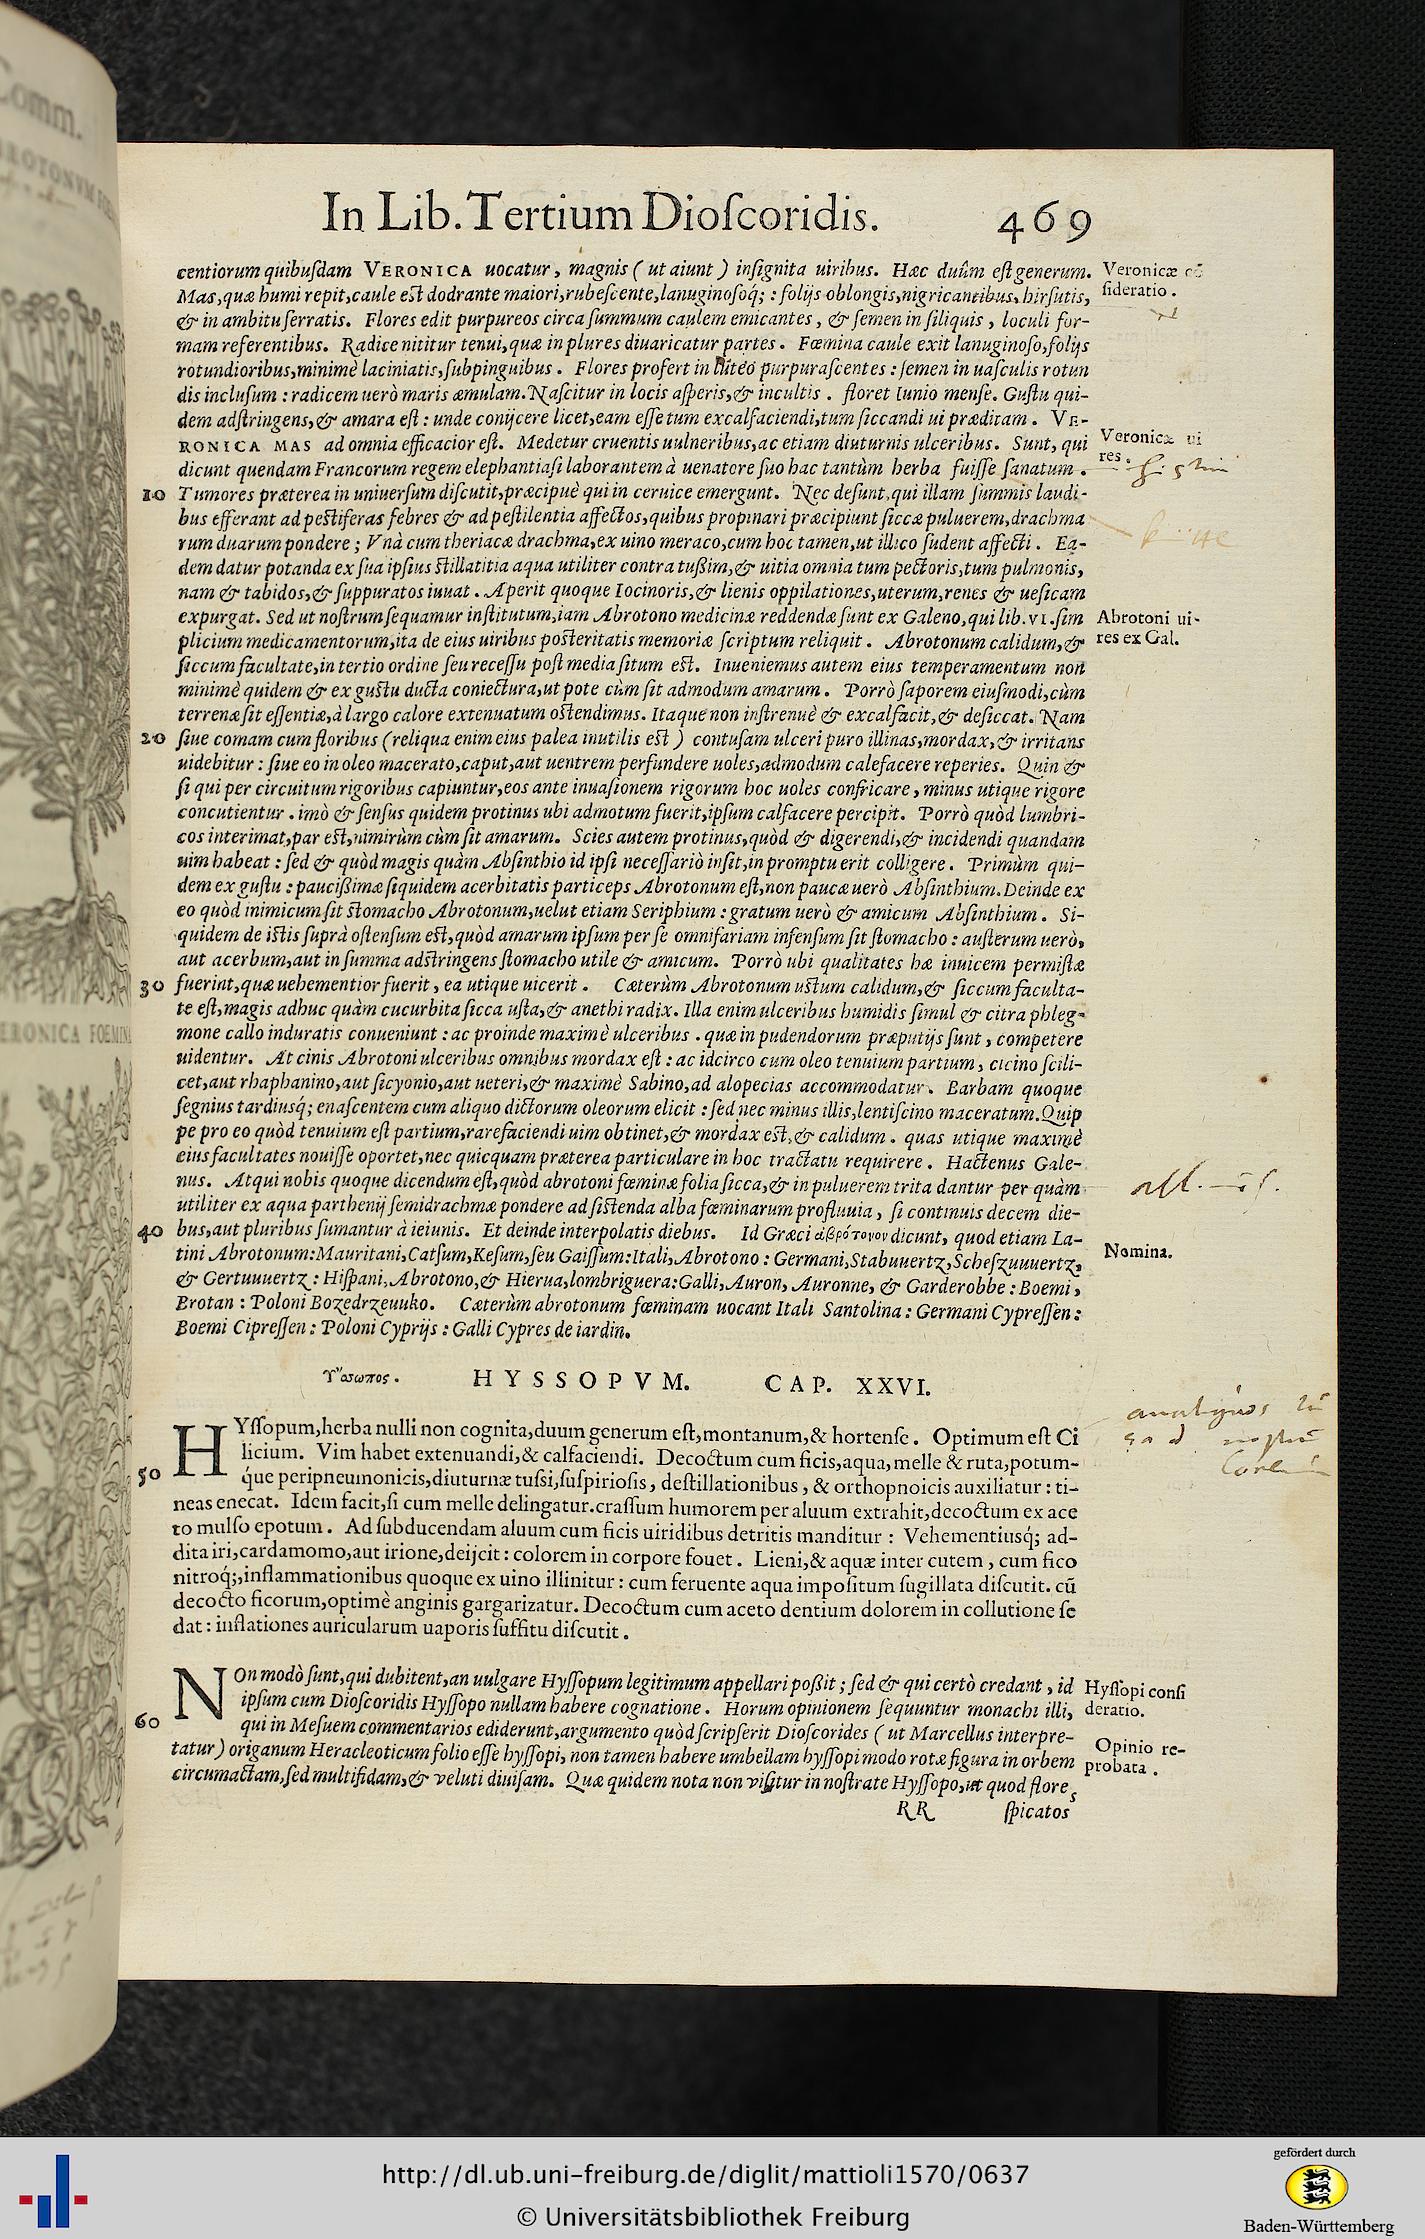 In Lib. Tertium Dioſcoridis. 469
centiorum quibuſdam VERONICA uocatur, magnis ( ut aiunt ) inſignita uiribus. Hæc duûm eſt generum.
Veronicæ cō
ſideratio.
Mas, quæ humi repit, caule eſt dodrante maiori, rubeſcente, lanuginoſoq́; : folijs oblongis, nigricantibus, hirſutis,
& in ambitu ſerratis. Flores edit purpureos circa ſummum caulem emicantes, & ſemen in ſiliquis, loculi for-
mam referentibus. Radice nititur tenui, quæ in plures diuaricatur partes. Fœmina caule exit lanuginoſo, folijs
rotundioribus, minimè laciniatis, ſubpinguibus. Flores profert in luteo purpuraſcentes : ſemen in uaſculis rotun
dis incluſum : radicem uerò maris æmulam. Naſcitur in locis aſperis, & incultis. floret Iunio menſe. Guſtu qui-
dem adſtringens, & amara eſt : unde conijcere licet, eam eſſe tum excalfaciendi, tum ſiccandi ui præditam. VE-
RONICA MAS ad omnia efficacior eſt. Medetur cruentis uulneribus, ac etiam diuturnis ulceribus. Sunt, qui
Veronicæ ui
res.
dicunt quendam Francorum regem elephantiaſi laborantem à uenatore ſuo hac tantùm herba fuiſſe ſanatum.
10 Tumores præterea in uniuerſum diſcutit, præcipuè qui in ceruice emergunt. Nec deſunt, qui illam ſummis laudi-
bus efferant ad peſtiferas febres & ad peſtilentia affectos, quibus propinari præcipiunt ſiccæ puluerem, drachma
rum duarum pondere ; Vnà cum theriacæ drachma, ex uino meraco, cum hoc tamen, ut illico ſudent affecti. Ea-
dem datur potanda ex ſua ipſius ſtillatitia aqua utiliter contra tußim, & uitia omnia tum pectoris, tum pulmonis,
nam & tabidos, & ſuppuratos iuuat. Aperit quoque Iocinoris, & lienis oppilationes, uterum, renes & ueſicam
expurgat. Sed ut noſtrum ſequamur inſtitutum, iam Abrotono medicinæ reddendæ ſunt ex Galeno, qui lib. VI. ſim
Abrotoni ui-
res ex Gal.
plicium medicamentorum, ita de eius uiribus poſteritatis memoriæ ſcriptum reliquit. Abrotonum calidum, &
ſiccum facultate, in tertio ordine ſeu receſſu poſt media ſitum eſt. Inueniemus autem eius temperamentum non
minimè quidem & ex guſtu ducta coniectura, ut pote cùm ſit admodum amarum. Porrò ſaporem eiuſmodi, cùm
terrenæ ſit eſſentiæ, à largo calore extenuatum oſtendimus. Itaque non inſtrenuè & excalfacit, & deſiccat. Nam
20 ſiue comam cum floribus (reliqua enim eius palea inutilis eſt ) contuſam ulceri puro illinas, mordax, & irritans
uidebitur : ſiue eo in oleo macerato, caput, aut uentrem perfundere uoles, admodum calefacere reperies. Quin &
ſi qui per circuitum rigoribus capiuntur, eos ante inuaſionem rigorum hoc uoles confricare, minus utique rigore
concutientur. imò & ſenſus quidem protinus ubi admotum fuerit, ipſum calfacere percipit. Porrò quòd lumbri-
cos interimat, par eſt, nimirùm cùm ſit amarum. Scies autem protinus, quòd & digerendi, & incidendi quandam
uim habeat : ſed & quòd magis quàm Abſinthio id ipſi neceſſariò inſit, in promptu erit colligere. Primùm qui-
dem ex guſtu : paucißimæ ſiquidem acerbitatis particeps Abrotonum eſt, non paucæ uerò Abſinthium. Deinde ex
eo quòd inimicum ſit ſtomacho Abrotonum, uelut etiam Seriphium : gratum uerò & amicum Abſinthium. Si-
quidem de iſtis ſuprà oſtenſum eſt, quòd amarum ipſum per ſe omnifariam infenſum ſit ſtomacho : auſterum uerò,
aut acerbum, aut in ſumma adſtringens ſtomacho utile & amicum. Porrò ubi qualitates hæ inuicem permiſtæ
30 fuerint, quæ uehementior fuerit, ea utique uicerit. Cæterùm Abrotonum uſtum calidum, & ſiccum faculta-
te eſt, magis adhuc quàm cucurbita ſicca uſta, & anethi radix. Illa enim ulceribus humidis ſimul & citra phleg-
mone callo induratis conueniunt : ac proinde maximè ulceribus. quæ in pudendorum præputijs ſunt, competere
uidentur. At cinis Abrotoni ulceribus omnibus mordax eſt : ac idcirco cum oleo tenuium partium, cicino ſcili-
cet, aut rhaphanino, aut ſicyonio, aut ueteri, & maximè Sabino, ad alopecias accommodatur. Barbam quoque
ſegnius tardiusq́; enaſcentem cum aliquo dictorum oleorum elicit : ſed nec minus illis, lentiſcino maceratum. Quip
pe pro eo quòd tenuium eſt partium, rarefaciendi uim obtinet, & mordax eſt, & calidum. quas utique maximè
eius facultates nouiſſe oportet, nec quicquam præterea particulare in hoc tractatu requirere. Hactenus Gale-
nus. Atqui nobis quoque dicendum eſt, quòd abrotoni fœminæ folia ſicca, & in puluerem trita dantur per quàm
utiliter ex aqua parthenij ſemidrachmæ pondere ad ſiſtenda alba fœminarum profluuia, ſi continuis decem die-
40 bus, aut pluribus ſumantur à ieiunis. Et deinde interpolatis diebus. Id Græci ἀβρότονον dicunt, quod etiam La-
Nomina.
tini Abrotonum: Mauritani, Catſum, Keſum, ſeu Gaiſſum: Itali, Abrotono : Germani, Stabuuertz, Scheſzuuuertz,
& Gertuuuertz : Hiſpani, Abrotono, & Hierua, lombriguera: Galli, Auron, Auronne, & Garderobbe : Boemi,
Brotan : Poloni Bozedrzeuuko. Cæterùm abrotonum fœminam uocant Itali Santolina : Germani Cypreſſen :
Boemi Cipreſſen : Poloni Cyprijs : Galli Cypres de iardin.
Υ῞σσωπος. HYSSOPVM. CAP. XXVI.
HYſſopum, herba nulli non cognita, duum generum eſt, montanum, & hortenſe. Optimum eſt Ci
licium. Vim habet extenuandi, & calfaciendi. Decoctum cum ficis, aqua, melle & ruta, potum-
50 q́ue peripneumonicis, diuturnæ tuſsi, ſuſpirioſis, deſtillationibus, & orthopnoicis auxiliatur : ti-
neas enecat. Idem facit, ſi cum melle delingatur. craſſum humorem per aluum extrahit, decoctum ex ace
to mulſo epotum. Ad ſubducendam aluum cum ficis uiridibus detritis manditur : Vehementiusq́; ad-
dita iri, cardamomo, aut irione, deijcit : colorem in corpore fouet. Lieni, & aquæ inter cutem, cum fico
nitroq́;, inflammationibus quoque ex uino illinitur : cum feruente aqua impoſitum ſugillata diſcutit. cū
decocto ficorum, optimè anginis gargarizatur. Decoctum cum aceto dentium dolorem in collutione ſe
dat : inflationes auricularum uaporis ſuffitu diſcutit.
NOn modò ſunt, qui dubitent, an uulgare Hyſſopum legitimum appellari poßit ; ſed & qui certò credant, id
Hyſſopi conſi
deratio.
ipſum cum Dioſcoridis Hyſſopo nullam habere cognatione. Horum opinionem ſequuntur monachi illi,
60 qui in Meſuem commentarios ediderunt, argumento quòd ſcripſerit Dioſcorides ( ut Marcellus interpre-
Opinio re-
probata.
tatur ) origanum Heracleoticum folio eſſe hyſſopi, non tamen habere umbellam hyſſopi modo rotæ figura in orbem
circumactam, ſed multifidam, & veluti diuiſam. Quæ quidem nota non viſitur in noſtrate Hyſſopo, ut quod flore
RR ſpicatos
Comm.
VERONICA FOEMINA
http://dl.ub.uni-freiburg.de/diglit/mattioli1570/0637
© Universitätsbibliothek Freiburg
gefördert durch
Baden-Württemberg